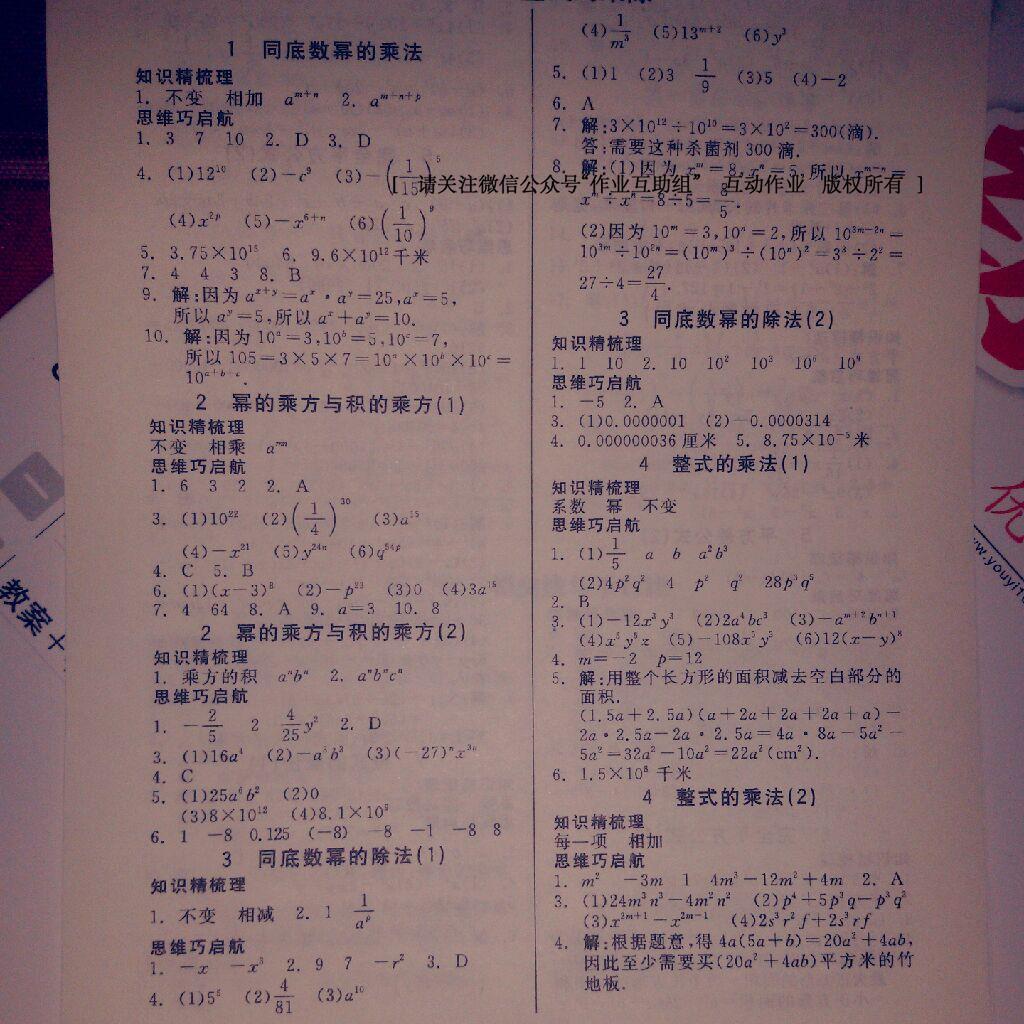 1 同底数幂的乘法
知识精梳理
1. 不变 相加 a^{m+n} 2. a^{m+n+p}
思维巧启航
1. 3 7 10 2. D 3. D
4. (1)12^{10} (2)-c^9 (3)-(1/15)^5
(4)x^{2p} (5)-x^{6+n} (6)(1/10)^9
5. 3.75×10^{15} 6. 9.6×10^{12}千米
7. 4 4 3 8. B
9. 解:因为a^{x+y}=a^x·a^y=25,a^x=5,
所以a^y=5,所以a^x+a^y=10.
10. 解:因为10^a=3,10^b=5,10^c=7,
所以105=3×5×7=10^a×10^b×10^c=
10^{a+b+c}.
2 幂的乘方与积的乘方(1)
知识精梳理
不变 相乘 a^{mn}
思维巧启航
1. 6 3 2 2. A
3. (1)10^{22} (2)(1/4)^{30} (3)a^{15}
(4)-x^{21} (5)y^{24n} (6)q^{54p}
4. C 5. B
6. (1)(x-3)^8 (2)-p^{23} (3)0 (4)3a^{15}
7. 4 64 8. A 9. a=3 10. 8
2 幂的乘方与积的乘方(2)
知识精梳理
1. 乘方的积 a^nb^n 2. a^nb^nc^n
思维巧启航
1. -2/5 2 4/25y^2 2. D
3. (1)16a^4 (2)-a^6b^3 (3)(-27)^nx^{3n}
4. C
5. (1)25a^6b^2 (2)0
(3)8×10^{12} (4)8.1×10^9
6. 1 -8 0.125 (-8) -8 -1 -8 8
3 同底数幂的除法(1)
知识精梳理
1. 不变 相减 2. 1 1/a^p
思维巧启航
1. -x -x^3 2. 9 7 -r^2 3. D
4. (1)5^5 (2)4/81 (3)a^{10}
(4)1/m^3 (5)13^{m+2} (6)y^3
5. (1)1 (2)3 1/9 (3)5 (4)-2
6. A
7. 解:3×10^{12}÷10^{10}=3×10^2=300(滴).
答:需要这种杀菌剂300滴.
8. 解:(1)因为x^m=8,x^n=5,所以x^{m-n}=
[ 请关注微信公众号"作业互助组" 互动作业 版权所有 ]
x^m÷x^n=8÷5=8/5.
(2)因为10^m=3,10^n=2,所以10^{3m-2n}=
10^{3m}÷10^{2n}=(10^m)^3÷(10^n)^2=3^3÷2^2=
27÷4=27/4.
3 同底数幂的除法(2)
知识精梳理
1. 1 10 2. 10 10^2 10^3 10^6 10^9
思维巧启航
1. -5 2. A
3. (1)0.0000001 (2)-0.0000314
4. 0.000000036厘米 5. 8.75×10^{-5}米
4 整式的乘法(1)
知识精梳理
系数 幂 不变
思维巧启航
1. (1)1/5 a b a^2b^3
(2)4p^2q^2 4 p^2 q^2 28p^3q^5
2. B
3. (1)-12x^3y^3 (2)2a^4bc^3 (3)-a^{m+2}b^{n+1}
(4)x^5y^5z (5)-108x^5y^5 (6)12(x-y)^8
4. m=-2 p=12
5. 解:用整个长方形的面积减去空白部分的
面积.
(1.5a+2.5a)(a+2a+2a+2a+a)-
2a·2.5a-2a·2.5a=4a·8a-5a^2-
5a^2=32a^2-10a^2=22a^2(cm^2).
6. 1.5×10^8千米
4 整式的乘法(2)
知识精梳理
每一项 相加
思维巧启航
1. m^2 -3m 1 4m^3-12m^2+4m 2. A
3. (1)24m^3n^3-4m^2n^2 (2)p^4+5p^3q-p^3q^3
(3)x^{2m+1}-x^{2m-1} (4)2s^3r^2f+2s^3rf
4. 解:根据题意,得4a(5a+b)=20a^2+4ab,
因此至少需要买(20a^2+4ab)平方米的竹
地板.
教案+
1